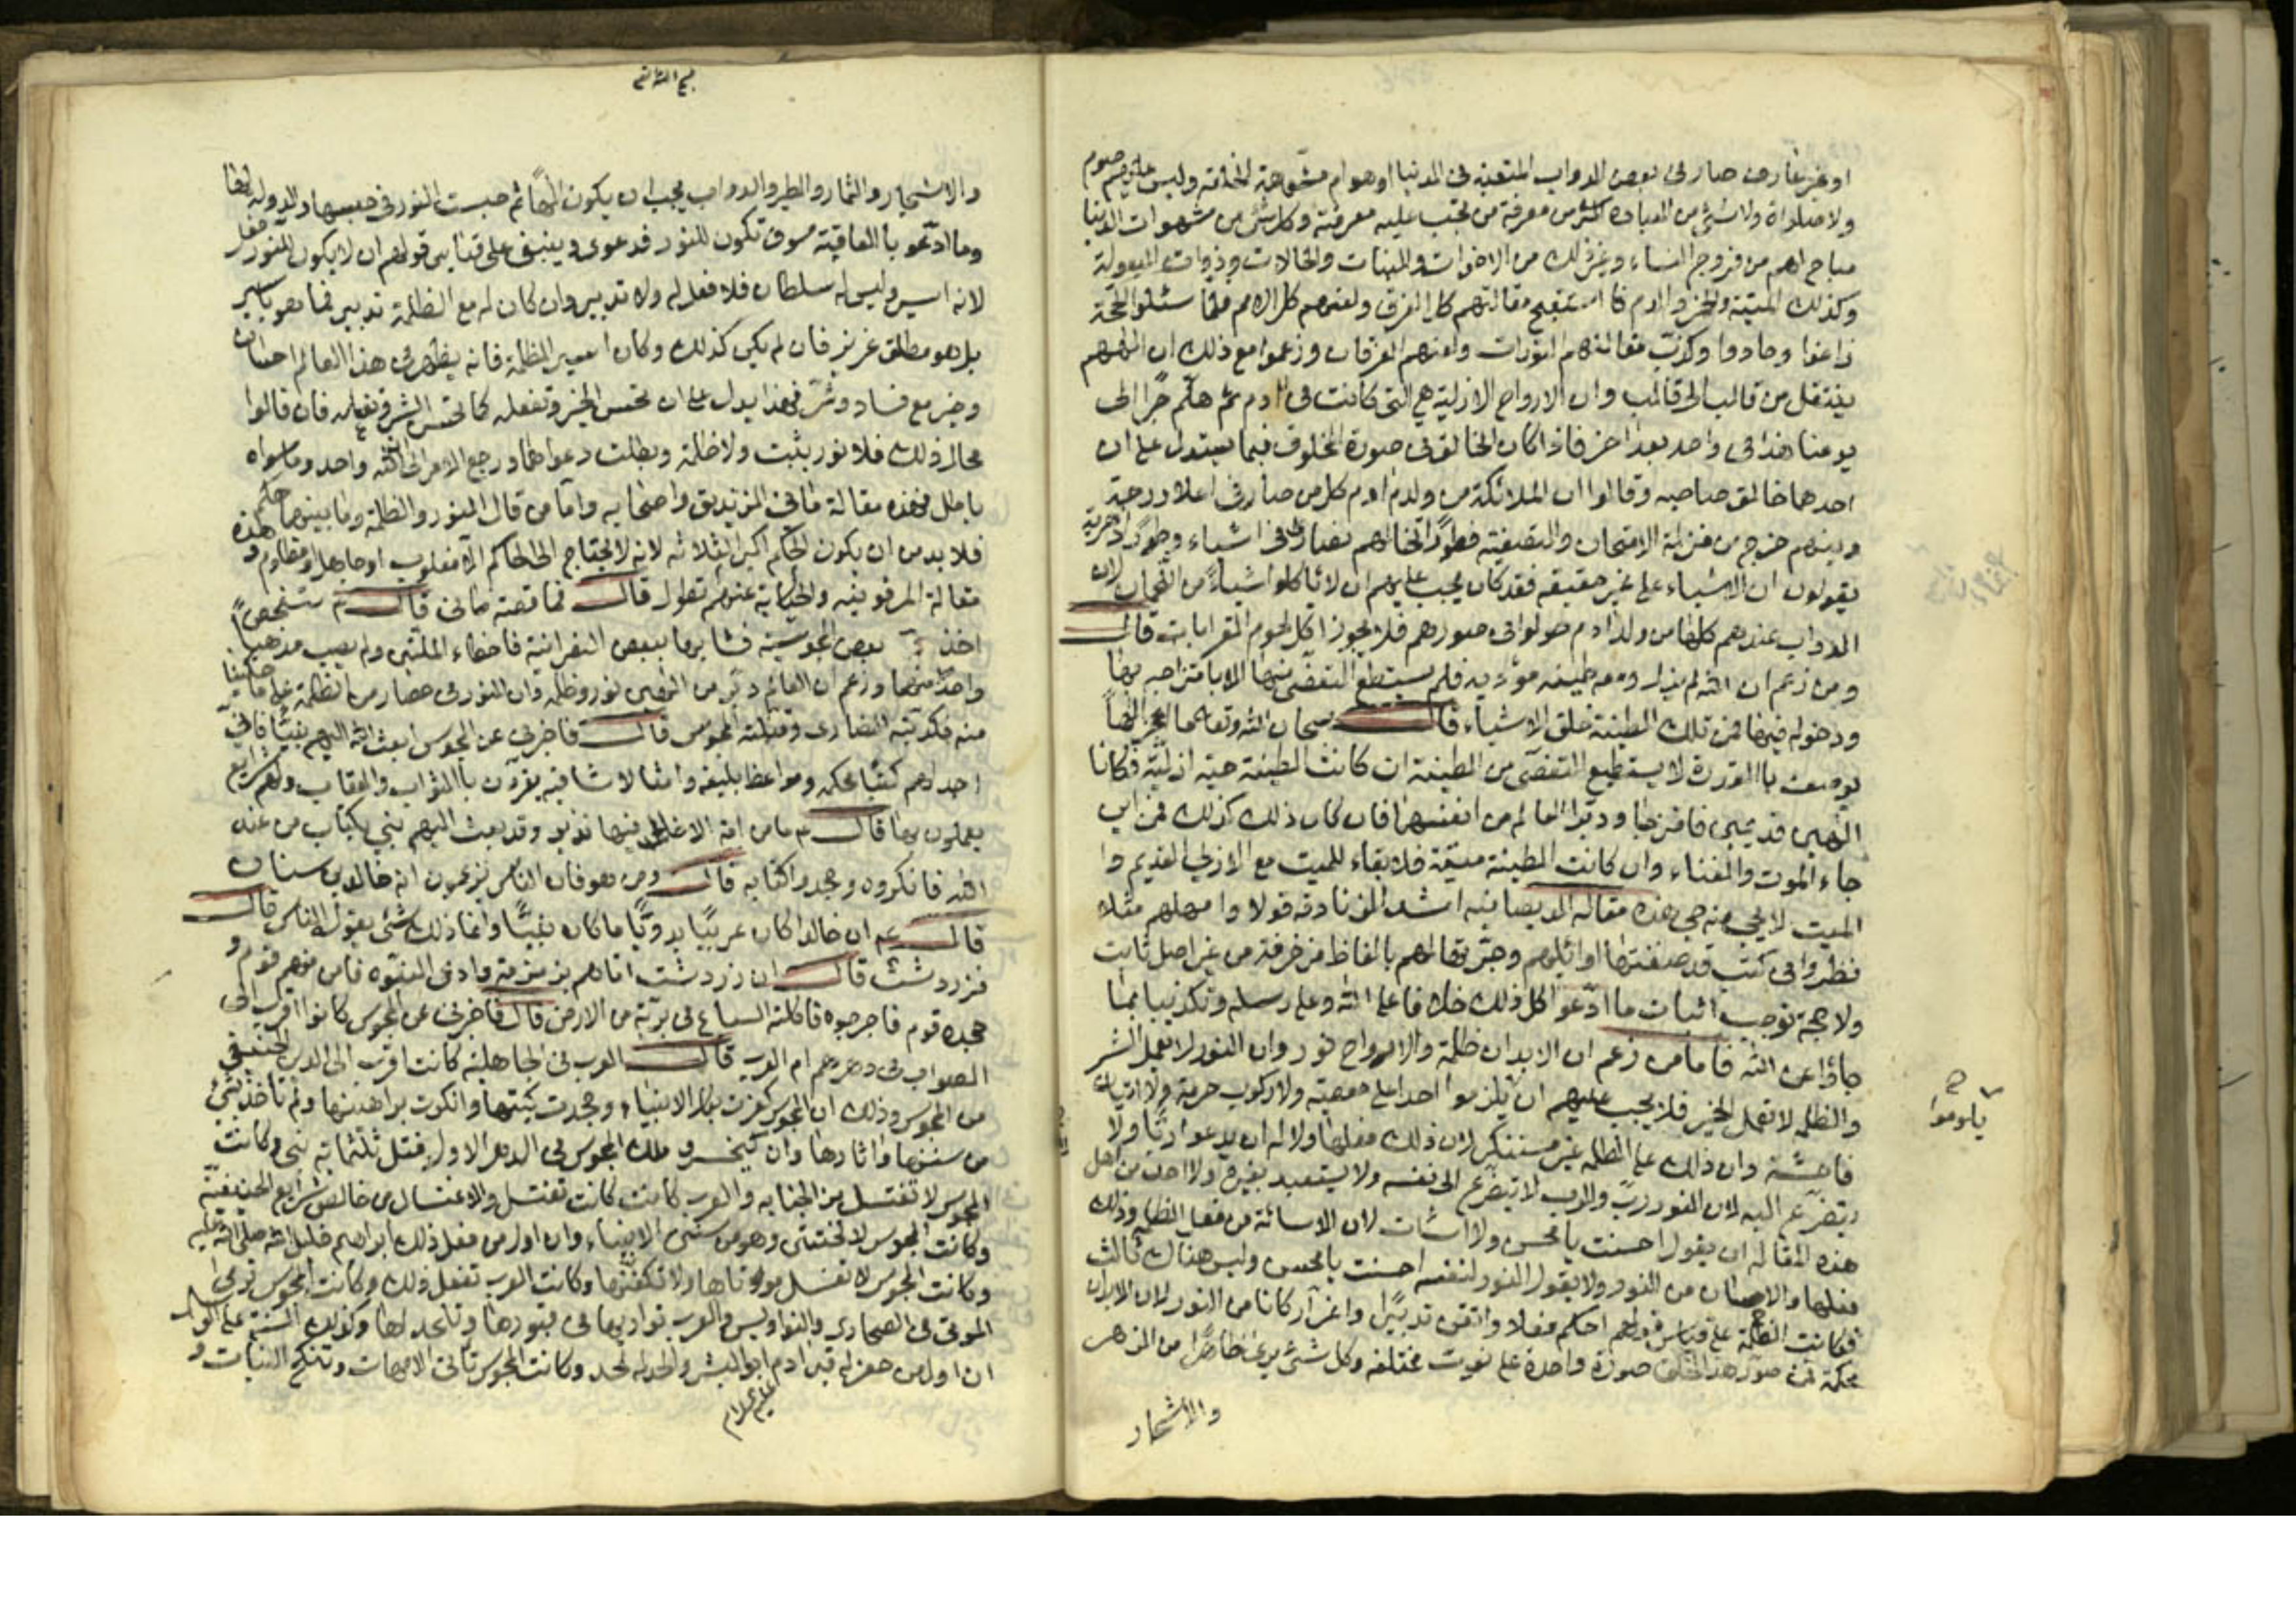 او غير عارف صار في بعض الدواب المتعبة في الدنيا او هوام مشوهة الخلقة وليس عليهم صوم
ولا صلواة ولا شئ من العبادة اكثر من معرفة من تجب عليه معرفته وكل شئ من شهوات الدنيا
مباح لهم من فروج النساء وغير ذلك من الاخوات والبنات والخالات وذوات البعولة
وكذلك الميتة والخمر والدم فاستقبح مقالتهم كل الفرق ولعنهم كل الامم فلما سئلوا الحجة
زاغوا وحادوا وكذب مقالتهم التورات ولعنهم الفرقان وزعموا مع ذلك ان الههم
ينتقل من قالب الى قالب وان الارواح الازلية هي التي كانت في ادم ثم هلم جرا الى
يومنا هذا في واحد بعد اخر فاذا كان الخالق في صورة المخلوق فبما يستدل على ان
احدهما خالق صاحبه وقالوا ان الملائكة من ولد ادم كل من صار في اعلا درجة
دينهم خرج من منزلة الامتحان والتصفية فطورا تخالهم نصارى في اشياء وطورا دهرية
يقولون ان الاشياء على غير حقيقة فقد كان يجب عليهم ان لا ياكلوا شيئا من اللحمان لان
الدواب عندهم كلها من ولد ادم حولوا في صورهم فلا يجوز اكل لحوم القرابات قال
ومن زعم ان الله لم يزل ومعه طينه موذيه فلم يستطع التفصي منها الا بامتزاجه بها
ودخوله فيها فمن تلك الطينة خلق الاشياء قال سبحان الله وتعالى ما اعجز الها
يوصف بالقدرة لا يستطيع التفصي من الطينة ان كانت الطينة حية ازلية فكانا
الهين قديمين فامتزجا ودبرا العالم من انفسهما فان كان ذلك كذلك فمن اين
جاء الموت والفناء وان كانت الطينة ميتة فلا بقاء للميت مع الازلي القديم وا
الميت لا يجئ منه حي هذه مقالة الديصانية اشد الزنادقة قولا وامهلهم مثلا
نظروا في كتب قد صنفتها اوائلهم وحبروها لهم بالفاظ مزخرفة من غير اصل ثابت
ولا حجة توجب اثبات ما ادعوا كل ذلك خلافا على الله وعلى رسله وتكذيبا بما
جاؤا عن الله فاما من زعم ان الابدان ظلمة والارواح نور وان النور لا يعمل الشر
والظلمة لا تعمل الخير فلا يجب عليهم ان يلزموا احدا على معصية ولا ركوب حرمة ولا اتيان
فاحشة وان ذلك على الظلمة غير مستنكر لان ذلك فعلها ولا له ان يدعوا ربا ولا
يتضرع اليه لان النور رب والرب لا يتضرع الى نفسه ولا يستعيذ بغيره ولا احد من اهل
هذه المقالة ان يقول احسنت يا محسن ولا اسات لان الاسائة من فعل الظلمة وذلك
فعلها والاحسان من النور ولا يقول النور لنفسه احسنت يا محسن وليس هناك ثالث
فكانت الظلمة على قياس قولهم احكم فعلا واتقن تدبيرا واعز اركانا من النور لان الابدان
محكمة فمن صور هذا الخلق صورة واحدة على نعوت مختلفة وكل شئ يرى ظاهرا من الزهر
والاشجار
يلوموا
والاشجار والثمار والطير والدواب يجب ان يكون الها ثم حبست النور في حبسها والدولة لها
وما ادعوا بان العاقبة سوف تكون للنور فدعوى وينبغي على قياس قولهم ان لا يكون للنور فعل
لانه اسير وليس له سلطان فلا فعل له ولا تدبير وان كان له مع الظلمة تدبير فما هو باسير
بل هو مطلق عزيز فان لم يكن كذلك وكان اسير الظلمة فانه يظهر في هذا العالم احسان
وخير مع فساد وشر فهذا يدل على ان تحسن الخير وتفعله كما تحسن الشر وتفعله فان قالوا
محال ذلك فلا نور يثبت ولا ظلمة وبطلت دعواهما ورجع الامر الى ان الله واحد وما سواه
باطل فهذه مقالة ماني الزنديق واصحابه واما من قال النور والظلمة وما بينهما حكم
فلا بد من ان يكون الحكم اكبر الثلاثة لانه لا يحتاج الى الحاكم الا مغلوب او جاهل او مظلوم وهذه
مقالة المرقونية والحكاية عنهم تطول قال فما قصة ماني قال ع متفحص
اخذ بعض المجوسية فشابها ببعض النصرانية فاخطاء الملتين ولم يصب مذهبا
واحدا منهما وزعم ان العالم دبر من الهين نور وظلمة وان النور في حصار من الظلمة على ما حكينا
منه فكذبته النصارى وقبلته المجوس قال فاخبرني عن المجوس ابعث الله اليهم نبيا فاني
اجد لهم كتبا محكمة ومواعظ بليغة وامثالا شافية يقرون بالثواب والعقاب ولهم شرايع
يعملون بها قال ع ما من امة الا خلا فيها نذير وقد بعث اليهم نبي بكتاب من عند
الله فانكروه وجحدوا كتابه قال ومن هو فان الناس يزعمون انه خالد بن سنان
قال ع ان خالدا كان عربيا بدويا ما كان نبيا وانما ذلك شئ يقوله الناس قال
فزردشت قال ان زردشت اتاهم بزمزمة وادعى النبوة فامن منهم قوم و
جحده قوم فاخرجوه فاكلته السباع في برية من الارض قال فاخبرني عن المجوس كانوا اقرب الى
الصواب في دهرهم ام العرب قال العرب في الجاهلية كانت اقرب الى الدين الحنيفي
من المجوس وذلك ان المجوس كفرت بكل الانبياء وجحدت كتبها وانكرت براهينها ولم تاخذ بشئ
من سننها واثارها وان كيخسرو ملك المجوس في الدهر الاول قتل ثلثمائة نبي وكانت
المجوس لا تغتسل من الجنابة والعرب كانت كانت تغتسل والاغتسال من خالص شرايع الحنيفية
وكانت المجوس لا تختتن وهو من سنن الانبياء وان اول من فعل ذلك ابراهيم خليل الله صلى الله عليه
وكانت المجوس لا تغسل موتاها ولا تكفنها وكانت العرب تفعل ذلك وكانت المجوس ترمي
الموتى في الصحاري والنواويس والعرب تواريها في قبورها وتلحد لها وكذلك السنة على الرسل
ان اول من حفر له قبر ادم ابو البشر والحد له لحد وكانت المجوس تاتي الامهات وتنكح البنات و
عليه السلام